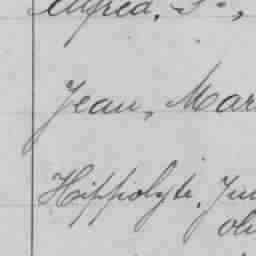 Alfred,
Jean, Mar
Hippolyte, Ju